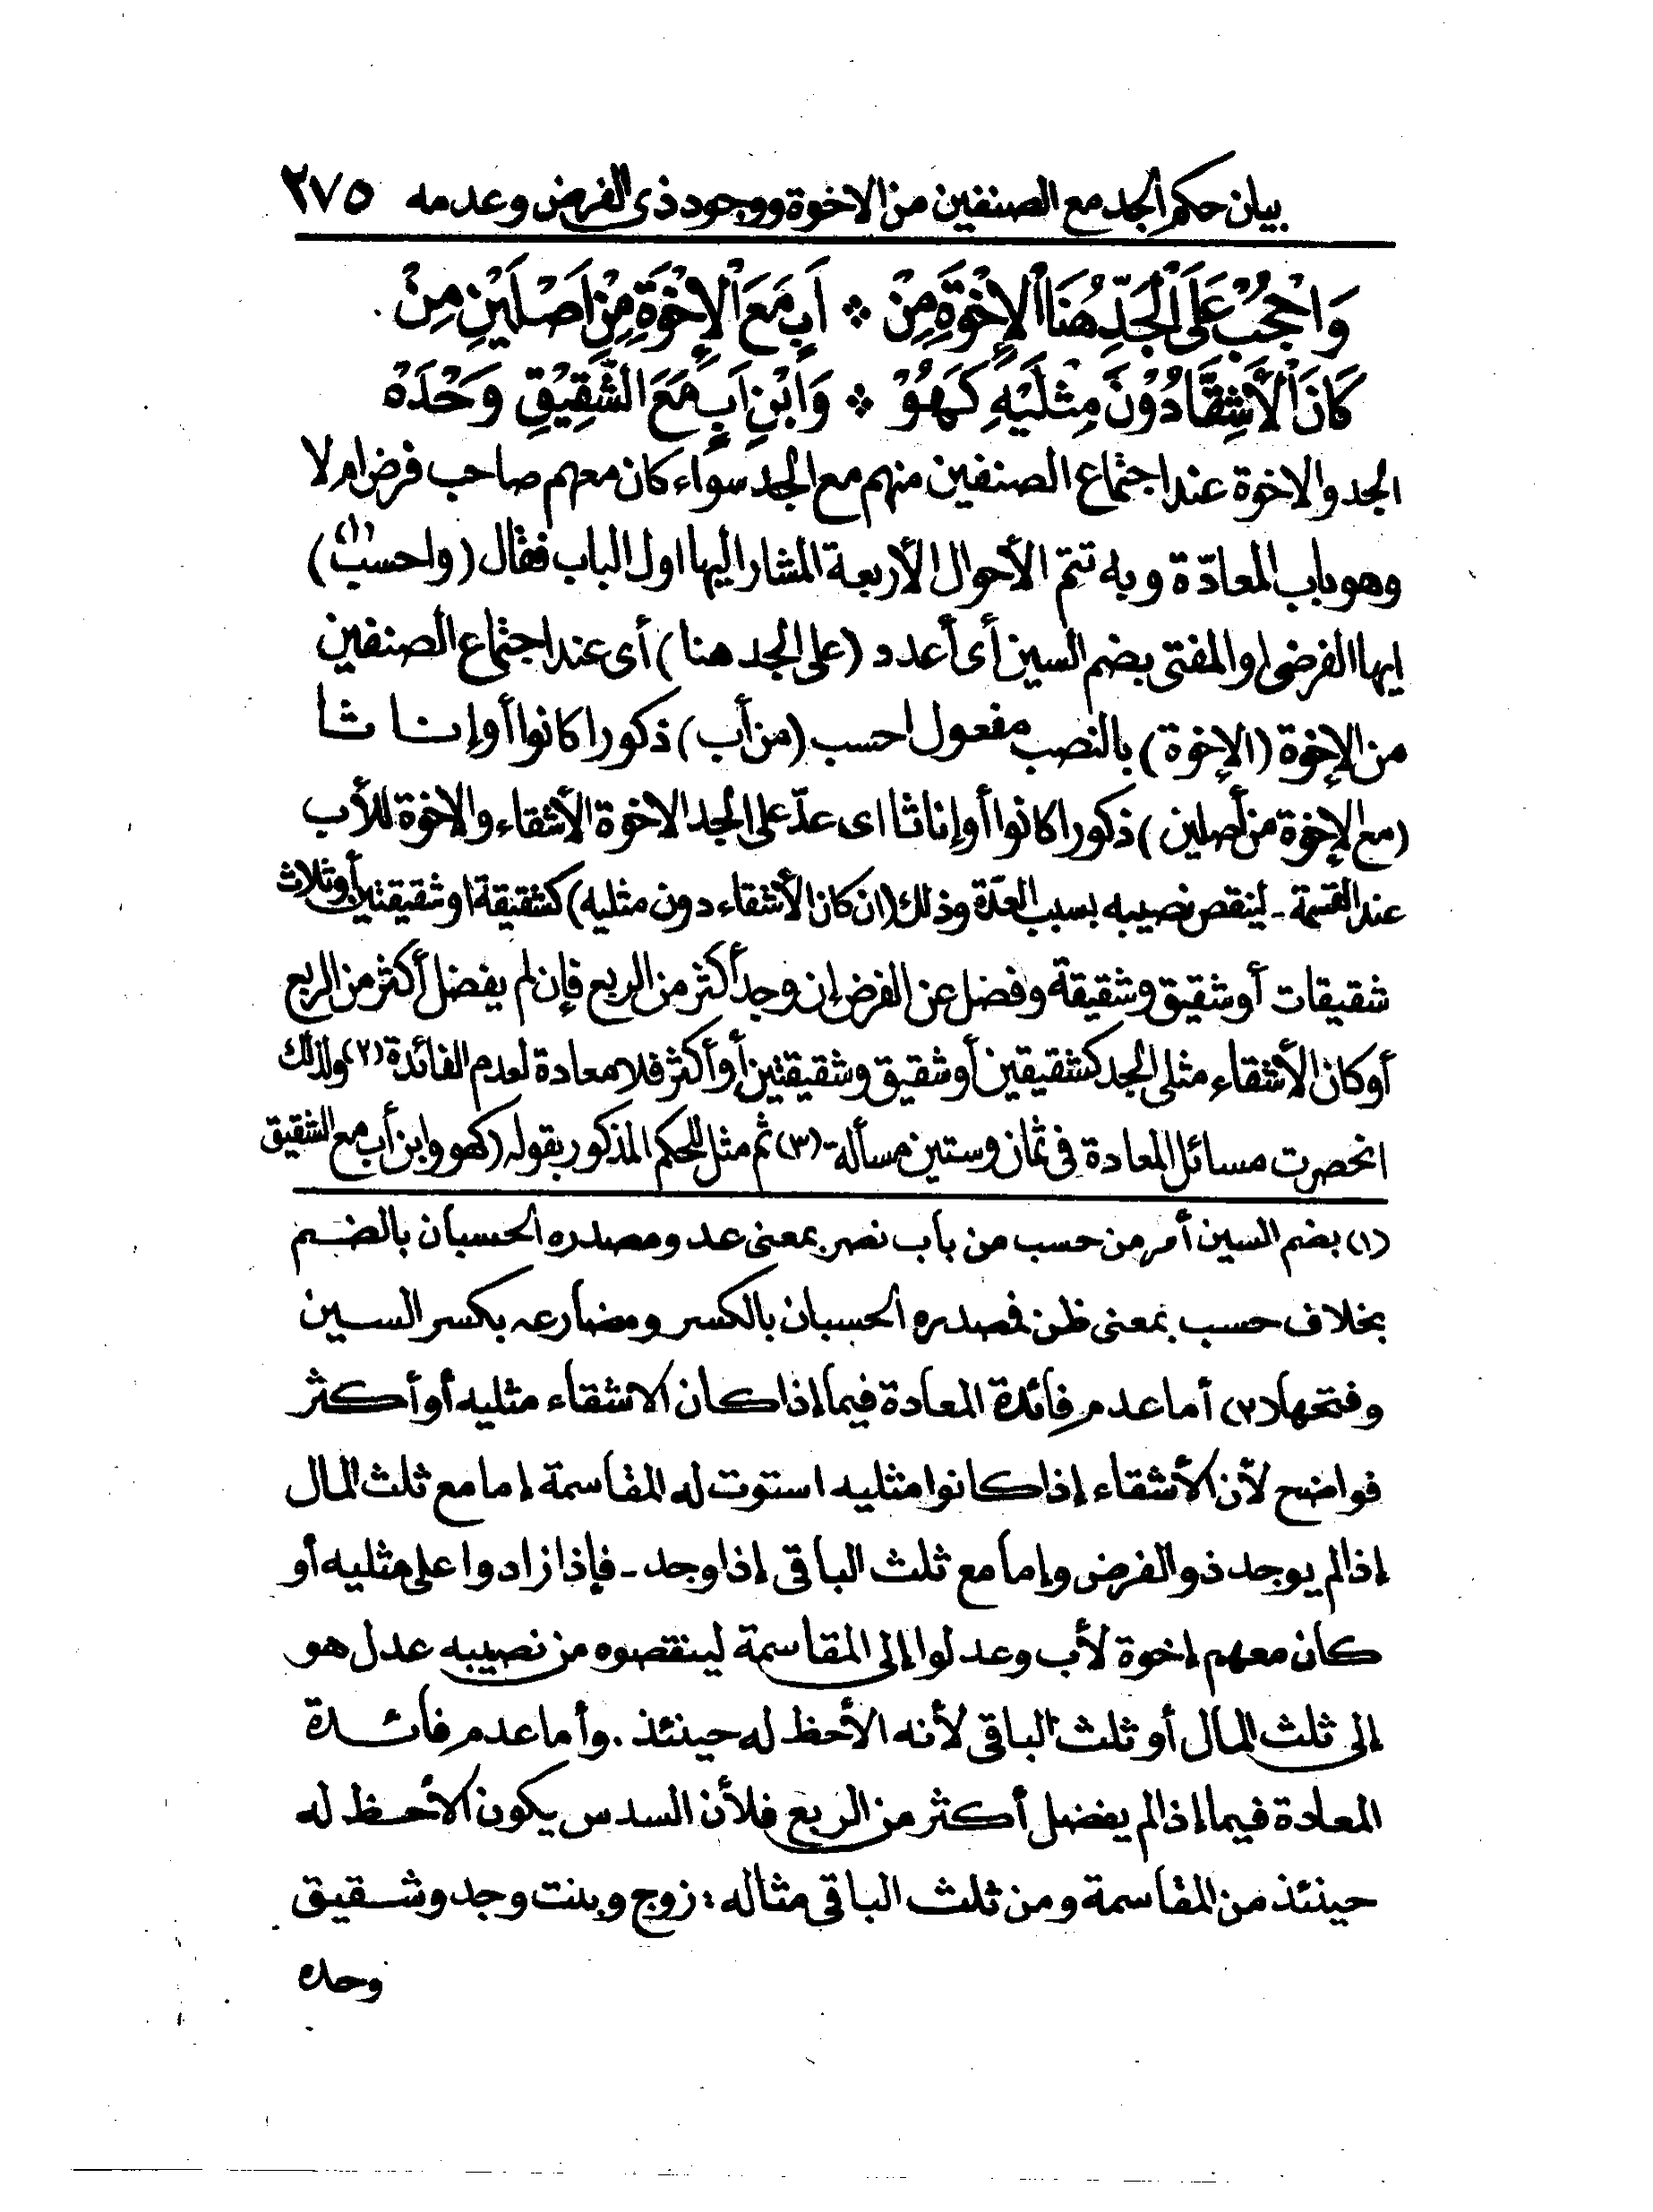 بيان حكم الجد مع الصنفين من الاخوة ووجود ذى الفرض وعدمه ٢٧٥
وَاحْجُبْ عَلَى الْجَدِّ هُنَا الْإِخْوَةَ مِنْ ❖ أَبٍ مَعَ الْإِخْوَةِ مِنْ اَصْلَيْنِ مِنْ
كَانَ الْأَشِقَّا دُوْنَ مِثْلَيْهِ كَهُوْ ❖ وَابْنِ اَبٍ مَعَ الشَّقِيْقِ وَحْدَهْ
الجد والاخوة عند اجتماع الصنفين منهم مع الجد سواء كان معهم صاحب فرض ام لا
وهو باب المعادّة وبه تتم الأحوال الأربعة المشار اليها اول الباب فقال (واحسب (١))
ايها الفرضى او المفتى بضم السين أى أعدد (على الجد هنا) أى عند اجتماع الصنفين
من الإخوة (الإخوة) بالنصب مفعول احسب (من أب) ذكورا كانوا أو إناثا
(مع الإخوة من أصلين) ذكورا كانوا أو إناثا اى عدّ على الجد الاخوة الأشقاء والإخوة للأب
عند القسمة - لينقص نصيبه بسبب العدّة وذلك (ان كان الأشقاء دون مثليه) كشقيقة او شقيقتين أو ثلاث
شقيقات أو شقيق وشقيقة وفضل عن الفرض إن وجد أكثر من الربع فإن لم يفضل أكثر من الربع
أو كان الأشقاء مثلى الجد كشقيقين أو شقيق وشقيقتين أو أكثر فلا معادة لعدم الفائدة (٢) ولذلك
انحصرت مسائل المعادة فى ثمان وستين مسألة (٣) ثم مثل للحكم المذكور بقوله (كهو وابن أب مع الشقيق
(١) بضم السين أمر من حسب من باب نصر بمعنى عد ومصدره الحسبان بالضم
بخلاف حسب بمعنى ظن فمصدره الحسبان بالكسر ومضارعه بكسر السين
وفتحها (٢) أما عدم فائدة المعادة فيما إذا كان الاشقاء مثليه أو أكثر
فواضح لأن الأشقاء إذا كانوا مثليه استوت له المقاسمة إما مع ثلث المال
إذا لم يوجد ذو الفرض وإما مع ثلث الباقى إذا وجد - فإذا زادوا على مثليه أو
كان معهم إخوة لأب وعدلوا إلى المقاسمة لينقصوه من نصيبه عدل هو
إلى ثلث المال أو ثلث الباقى لأنه الأحظ له حينئذ . وأما عدم فائدة
المعادة فيما إذا لم يفضل أكثر من الربع فلأن السدس يكون الأحظ له
حينئذ من المقاسمة ومن ثلث الباقى مثاله : زوج وبنت وجد وشقيق
وحده